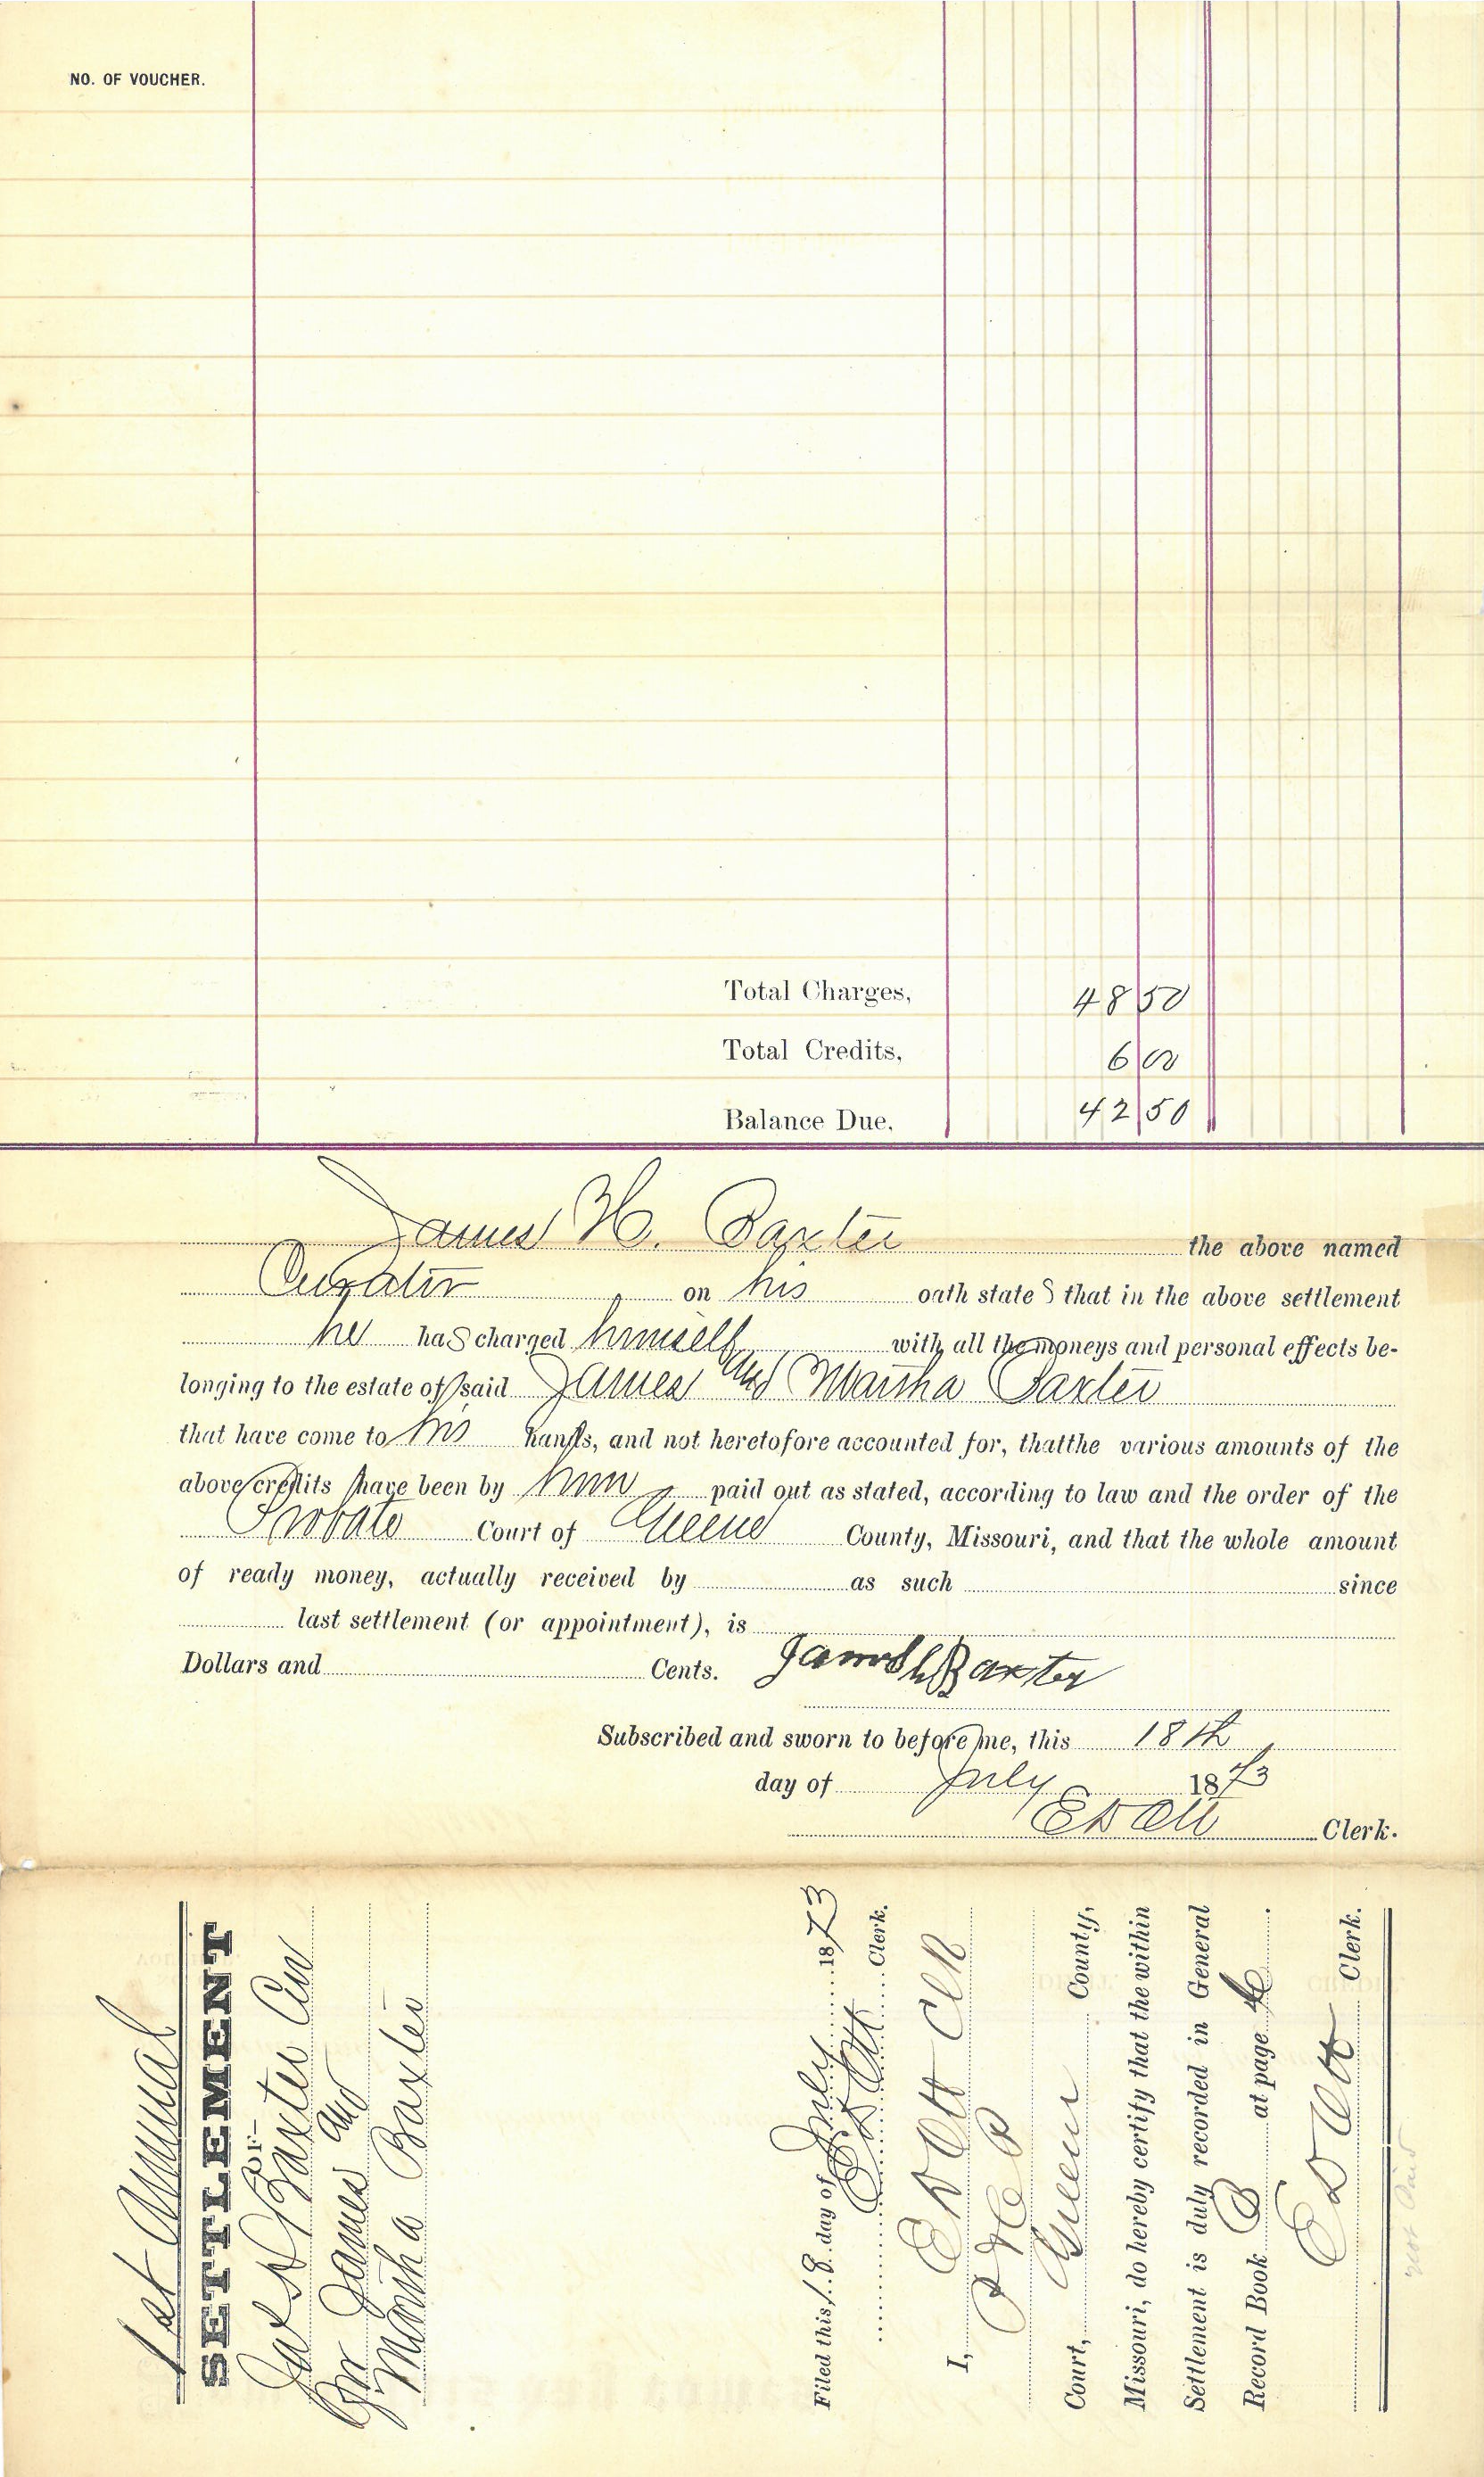 NO. OF VOUCHER.
Total Charges, 48 50
Total Credits, 6 00
Balance Due, 42 50
James H. Baxter the above named
Curator on his oath states that in the above settlement
he has charged himself with all the moneys and personal effects be-
longing to the estate of said James and Martha Baxter
that have come to his hands, and not heretofore accounted for, thatthe various amounts of the
above credits have been by him paid out as stated, according to law and the order of the
Probate Court of Greene County, Missouri, and that the whole amount
of ready money, actually received by as such since
last settlement (or appointment), is
Dollars and Cents. James h Baxter
Subscribed and sworn to before me, this 18th
day of July 1873
E D Ott Clerk.
1st Annual
SETTLEMENT
—OF—
Jas H Baxter Cur
for James and
Martha Baxter
Filed this 18 day of July 1873
E D Ott Clerk.
I, E D Ott Clk
Court, Green County,
Missouri, do hereby certify that the within
Settlement is duly recorded in General
Record Book B at page
E D Ott Clerk.